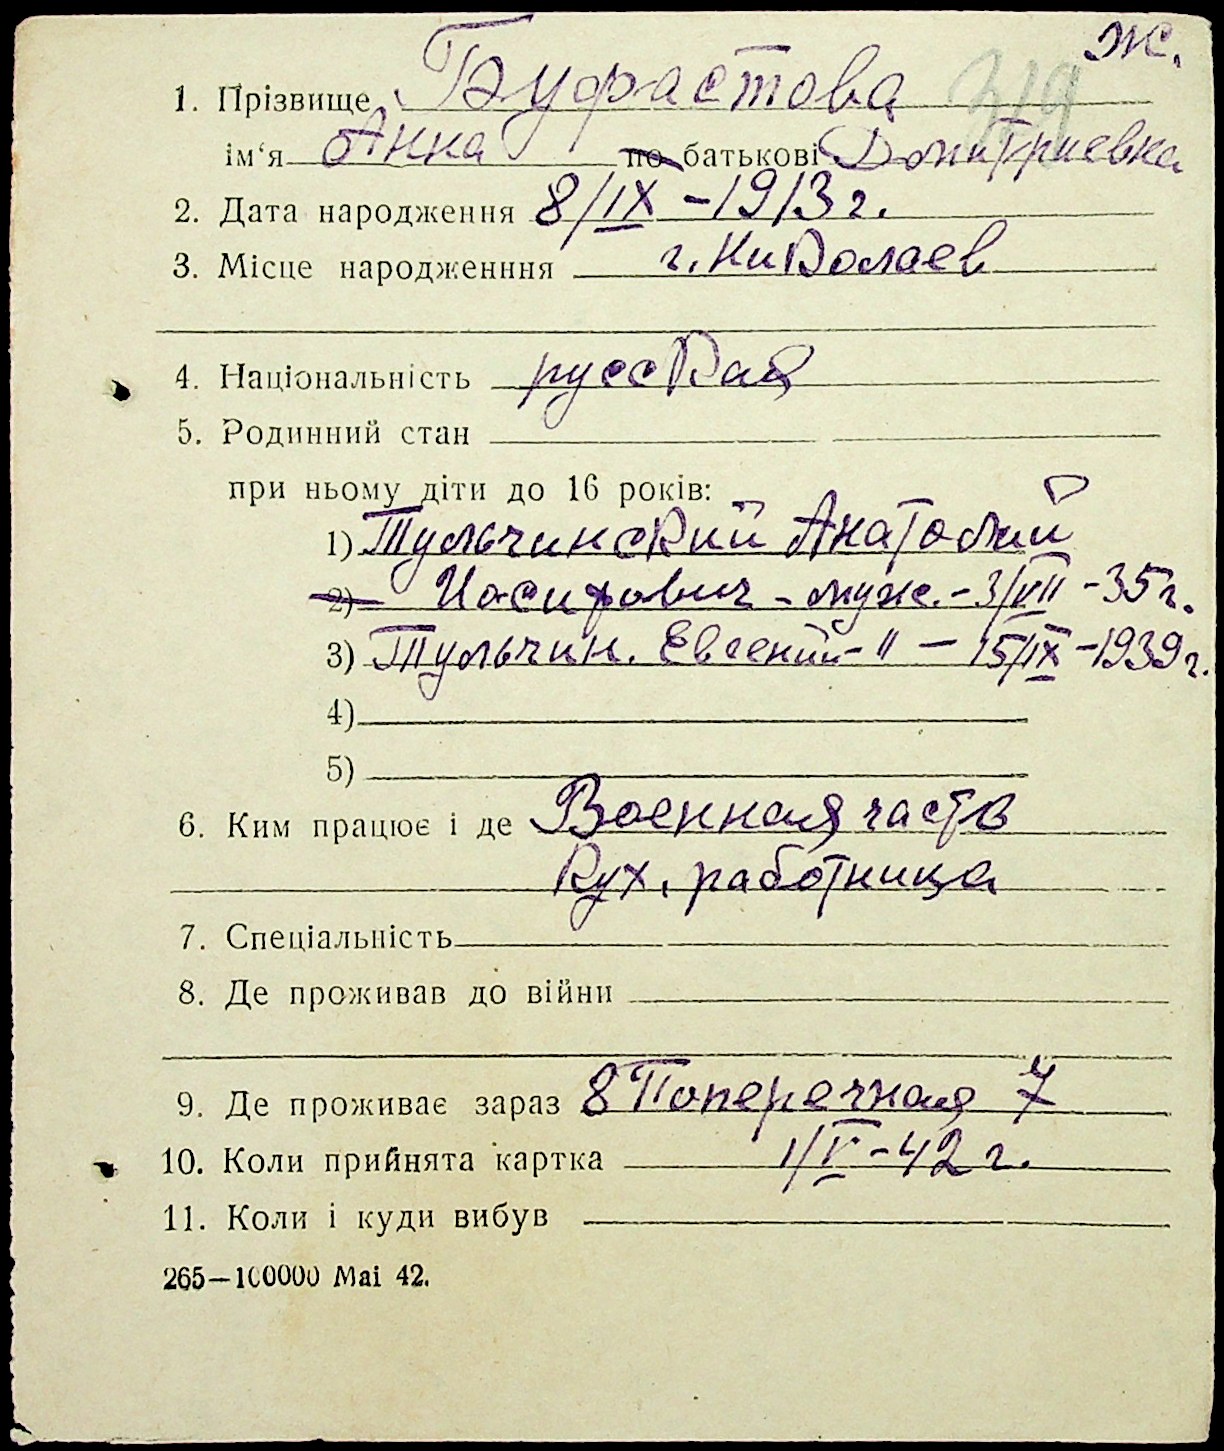 ж.
1. Прізвище Буфастова
ім‘я Анна по батькові Дмитриевна
2. Дата народження 8/IX - 1913 г.
3. Місце народженння г. Николаев
4. Національність русская
5. Родинний стан
при ньому діти до 16 років:
1) Тульчинский Анатолий
2) Иосифович - муж. - 3/VII - 35 г.
3) Тульчин. Евгений - " - 15/IX - 1939 г.
4)
5)
6. Ким працює і де Военная часть
Кух. работница
7. Спеціальність
8. Де проживав до війни
9. Де проживає зараз 8 Поперечная 7
10. Коли прийнята картка 1/V - 42 г.
11. Коли і куди вибув
265—100000 Mai 42.